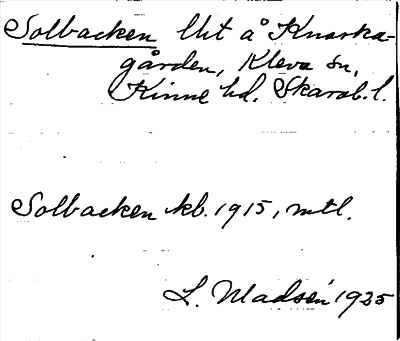 Solbacken lht å Knaska-
gården, Kleva sn,
Kinne hd. Skarab. l.
Solbacken kb. 1915, mtl.
L. Madsén 1925